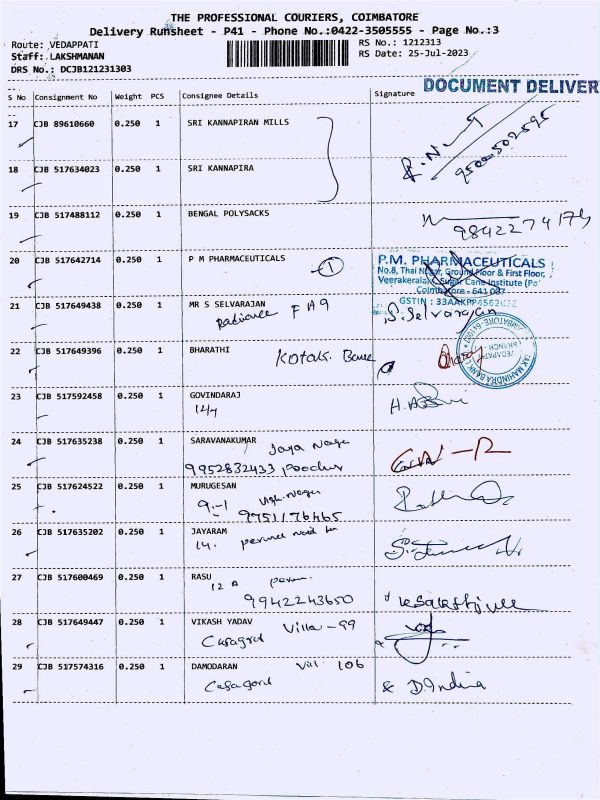 THE PROFESSIONAL COURIERS, COIMBATORE
Delivery Runsheet - P41 - Phone No.:0422-3505555 - Page No.:3
Route: VEDAPPATI RS No.: 1212313
Staff: LAKSHMANAN RS Date: 25-Jul-2023
DRS No.: DCJB121231303
DOCUMENT DELIVER
S No Consignment No Weight PCS Consignee Details Signature
17 CJB 89610660 0.250 1 SRI KANNAPIRAN MILLS
18 CJB 517634023 0.250 1 SRI KANNAPIRA
19 CJB 517488112 0.250 1 BENGAL POLYSACKS
20 CJB 517642714 0.250 1 P M PHARMACEUTICALS
1
P.M. PHARMACEUTICALS
No.8, Thai Nagar, Ground Floor & First Floor,
Veerakeralam, Sugar Cane Institute (Po)
Coimbatore - 641 007
21 CJB 517649438 0.250 1 MR S SELVARAJAN
Radiance F A9 S. Selvarajan
22 CJB 517649396 0.250 1 BHARATHI
Kotak. Bank
VEDAPATTI
BRANCH
23 CJB 517592458 0.250 1 GOVINDARAJ
14/7
24 CJB 517635238 0.250 1 SARAVANAKUMAR
Jaya Nagar
9952832433
25 CJB 517624522 0.250 1 MURUGESAN
Nagar
9751176465
26 CJB 517635202 0.250 1 JAYARAM
14.
27 CJB 517600469 0.250 1 RASU
12 A
9942243650
28 CJB 517649447 0.250 1 VIKASH YADAV
Villa - 99
Casagrand
29 CJB 517574316 0.250 1 DAMODARAN
Vill 106
Casagrand D. Indira